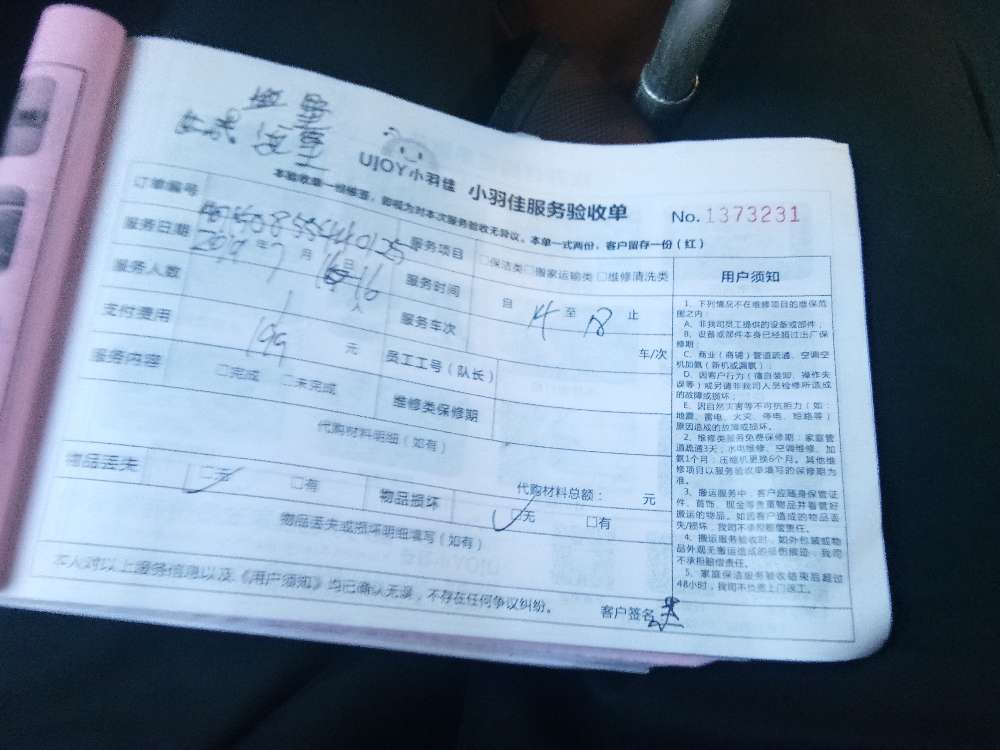 UJOY小羽佳 小羽佳服务验收单
No. 1373231
本验收单一份帐落，即视为对本次服务验收无异议。本单一式两份，客户留存一份（红）
订单编号 服务项目 □保洁类□搬家运输类□维修清洗类
服务日期 年 7 月 16 日 服务时间 自 14 至 18 止
服务人数 1 人 服务车次 车/次
支付费用 199 元 员工工号（队长）
服务内容 □完成 □未完成 维修类保修期
代购材料明细（如有）
代购材料总额： 元
物品丢失 □无 □有 物品损坏 □无 □有
物品丢失或损坏明细填写（如有）
本人对以上服务信息以及《用户须知》均已确认无误，不存在任何争议纠纷。
客户签名
用户须知
1、下列情况不在维修项目的维保范
围之内：
A、非我司员工提供的设备或部件；
B、设备或部件本身已经超过出厂保
修期
C、商业（商铺）管道疏通、空调空
机加氨（新机或漏氨）；
D、因客户行为（擅自装卸、操作失
误等）或另请非我司人员检修所造成
的故障或损坏；
E、因自然灾害等不可抗拒力（如：
地震、雷电、火灾、停电、短路等）
原因造成的故障或损坏。
2、维修类服务免费保修期：家庭管
道疏通3天；水电维修、空调维修、加
氨1个月；压缩机更换6个月。其他维
修项目以服务验收单填写的保修期为
准。
3、搬运服务中，客户应随身保管证
件、首饰、现金等贵重物品并看管好
搬运的物品。如因客户造成的物品丢
失/损坏，我司不承担赔偿责任。
4、搬运服务验收时，如外包装或物
品外观无搬运造成的损伤痕迹，我司
不承担赔偿责任。
5、家庭保洁服务验收结束后超过
48小时，我司不负责上门返工。